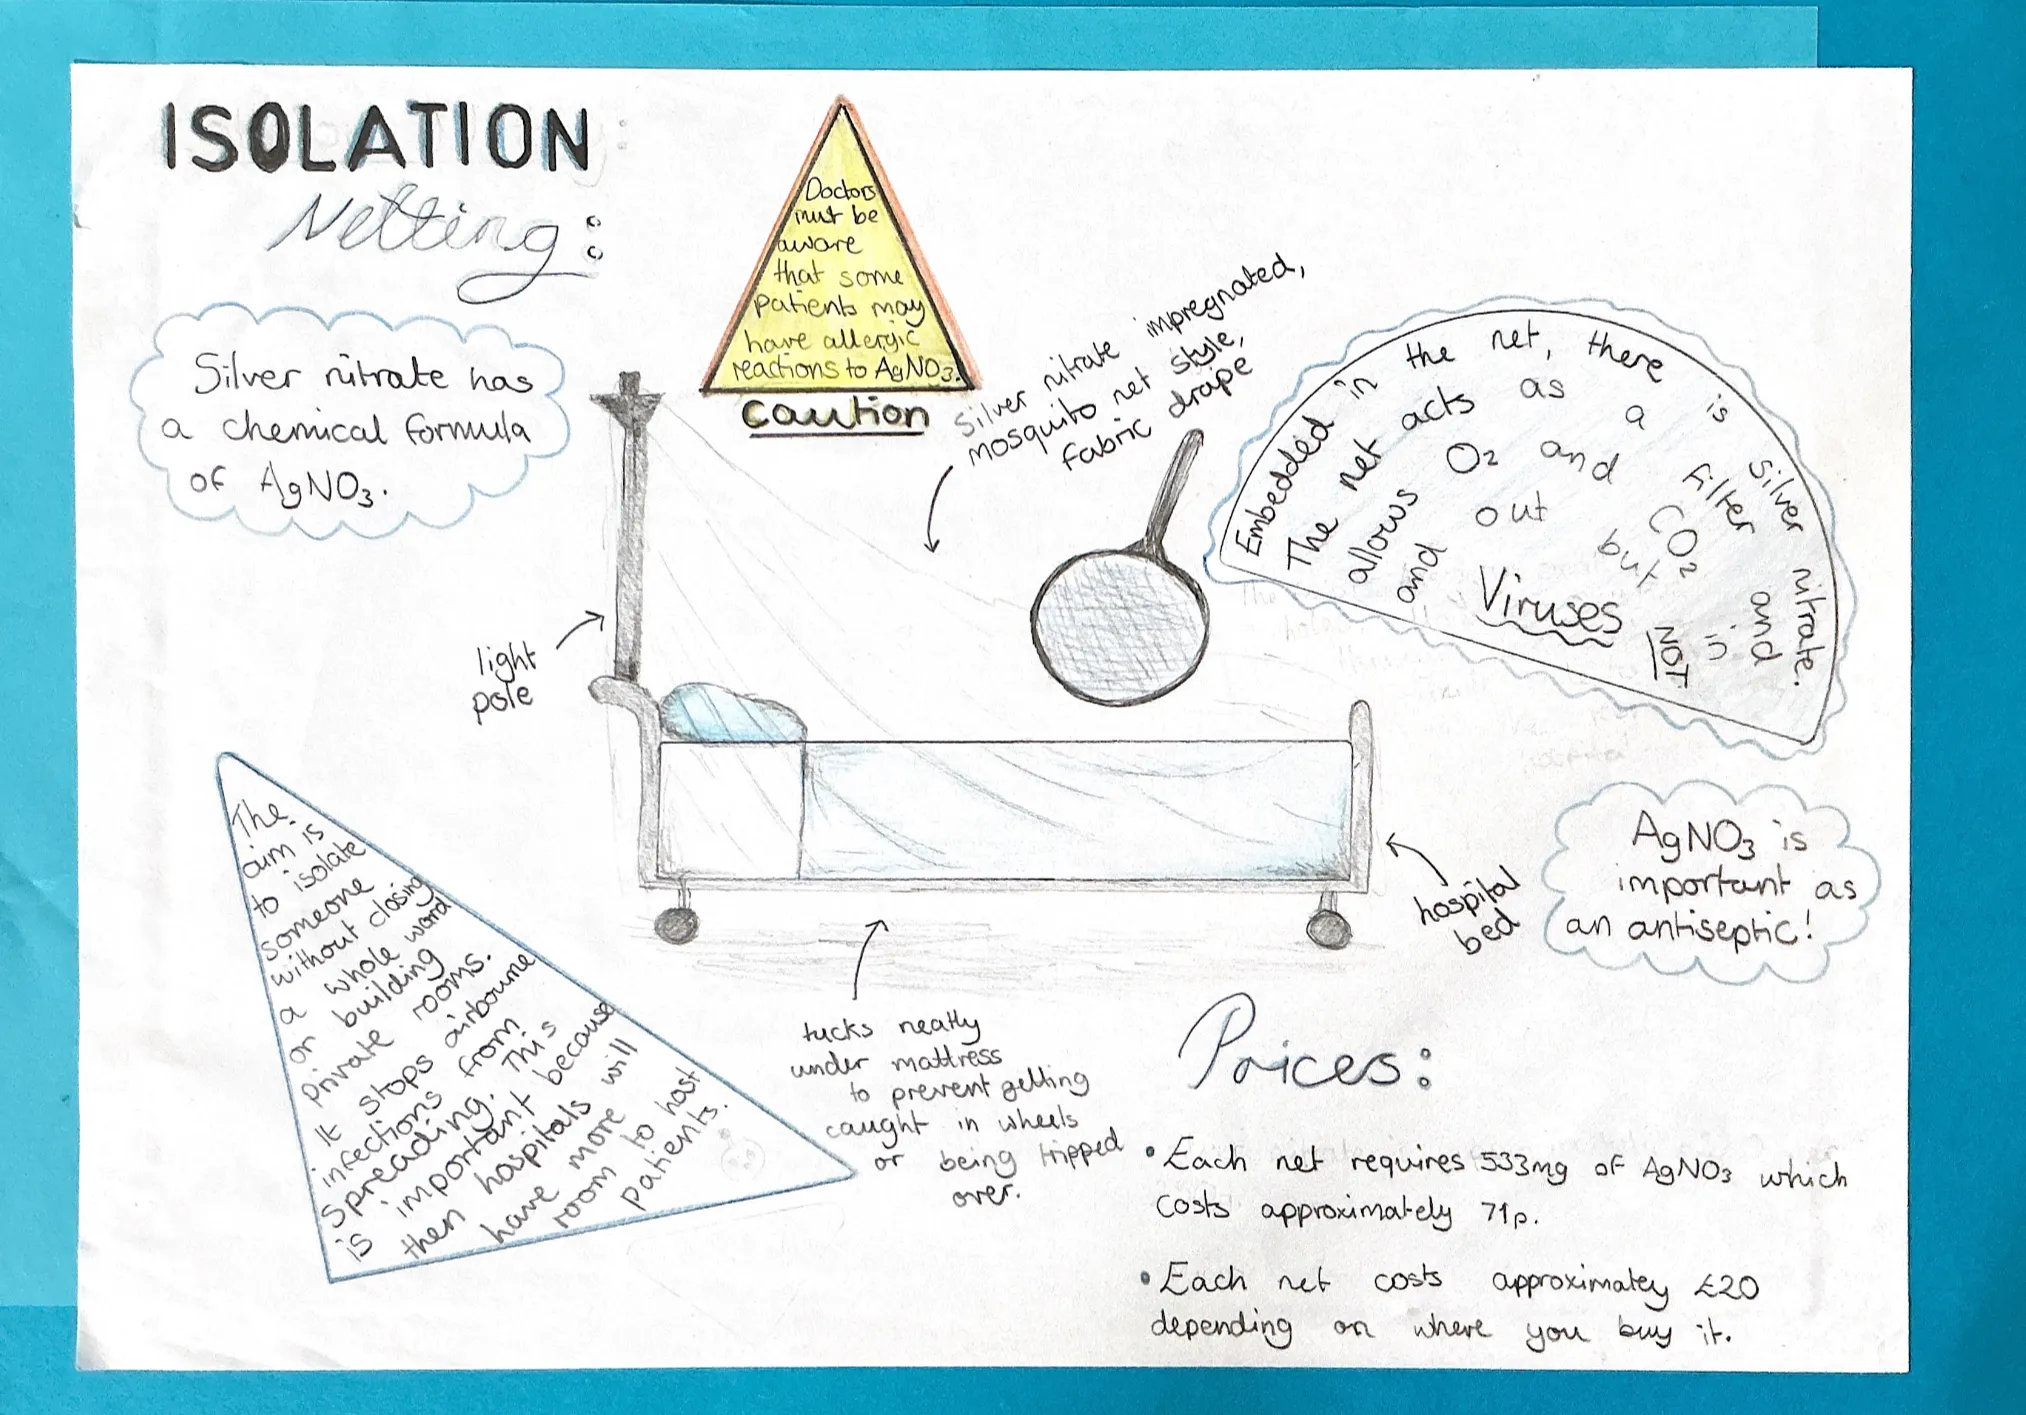 ISOLATION
Netting:
Doctors
must be
aware
that some
patients may
have allergic
reactions to AgNO3.
caution
Silver nitrate has
a chemical formula
of AgNO3.
Silver nitrate impregnated,
mosquito net style,
fabric drape
Embedded in the net, there is silver nitrate.
The net acts as a filter and
allows O2 and CO2 in
and out but NOT
Viruses
light
pole
The
aim is
to isolate
someone
without closing
a whole ward
or building
private rooms.
It stops airbourne
infections from
spreading. This
is important because
then hospitals will
have more
room to host
patients.
hospital
bed
AgNO3 is
important as
an antiseptic!
tucks neatly
under mattress
to prevent getting
caught in wheels
or being tripped
over.
Prices:
• Each net requires 533mg of AgNO3 which
costs approximately 71p.
• Each net costs approximatey £20
depending on where you buy it.